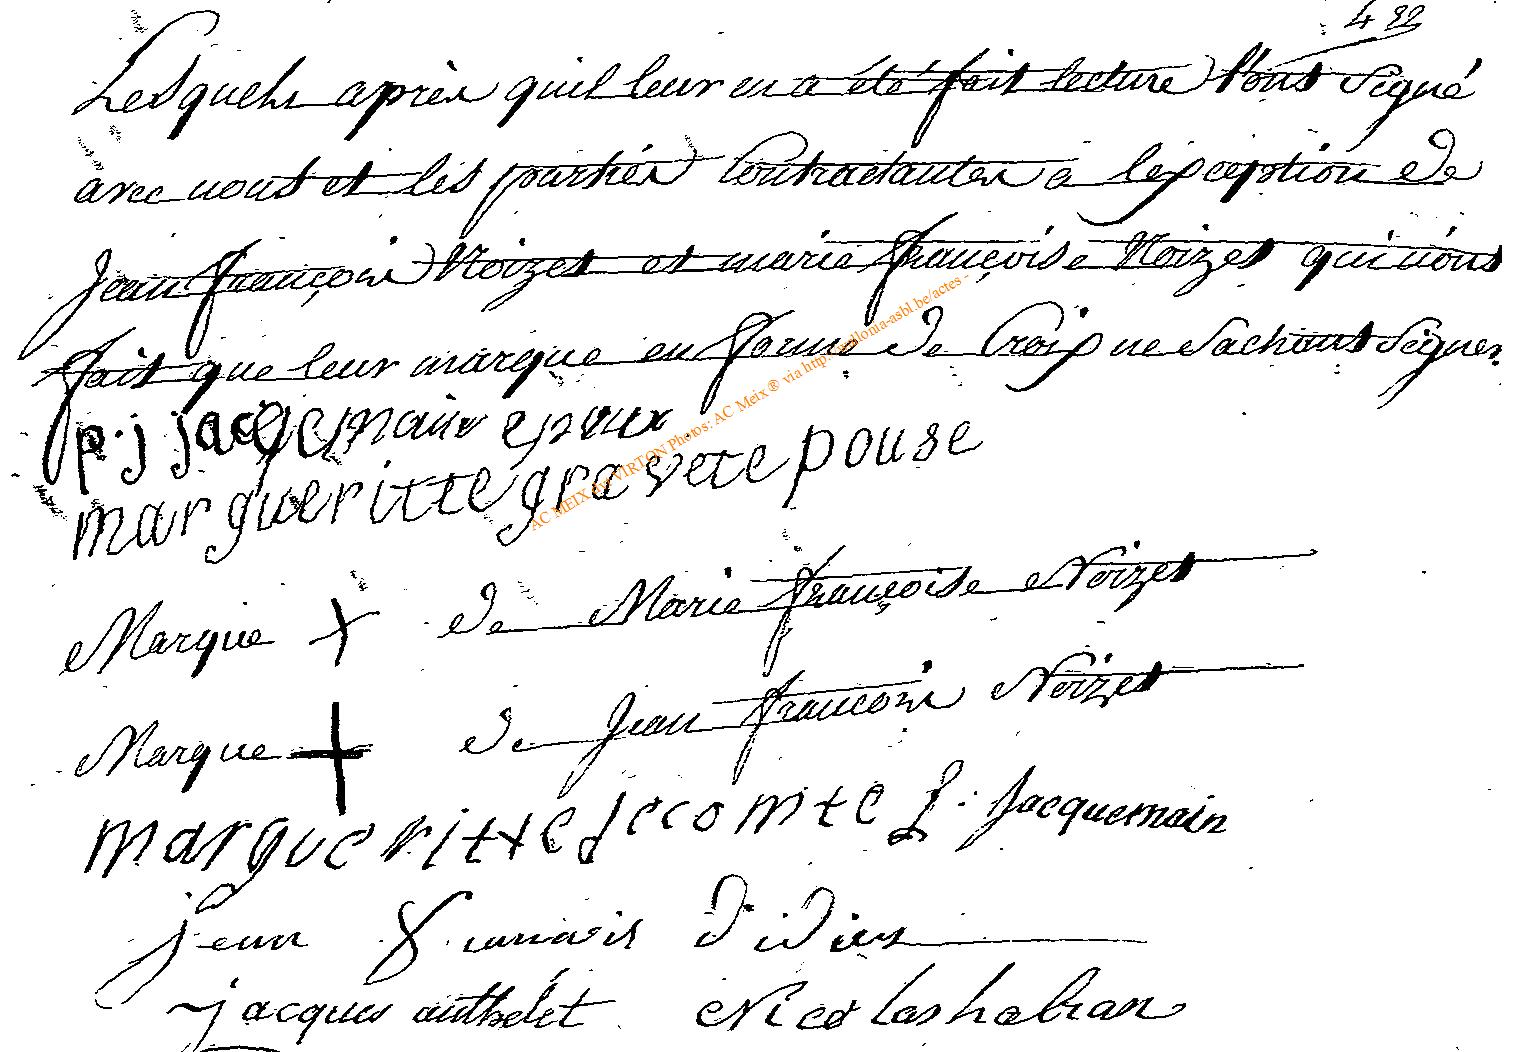 432
Lesquels après quil leur en a été fait lecture l'ont signé
avec nous et les parties Contractantes a lexception de
Jean françois Noizet et marie françoise Noizet qui n'ont
fait que leur marque en forme de Croix ne sachant signer
p. j jacqemain epoux
margueritte gravet epouse
Marque + de Marie françoise Noizet
Marque + de Jean françois Noizet
margueritte lecomte J. Jacquemain
jean francois didier
jacques authelet Nicolas habran
AC MEIX dvt VIRTON Photos: AC Meix ® via http://gallonia-asbl.be/actes-